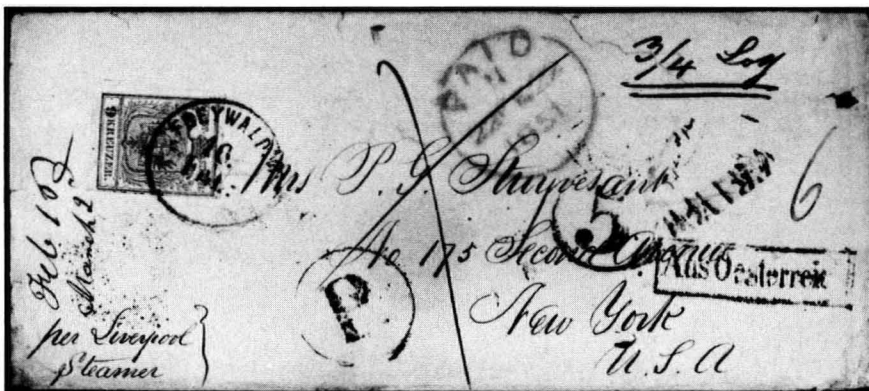 3/4 Log
PAID
1851
9 KREUZER.
FREYWALDAU
Mrs P. G. Stuyvesant
No 175 Second Avenue
New York
U.S.A
5
6
Aus Oesterreich
P
Feb 10
March 2
per Liverpool
Steamer